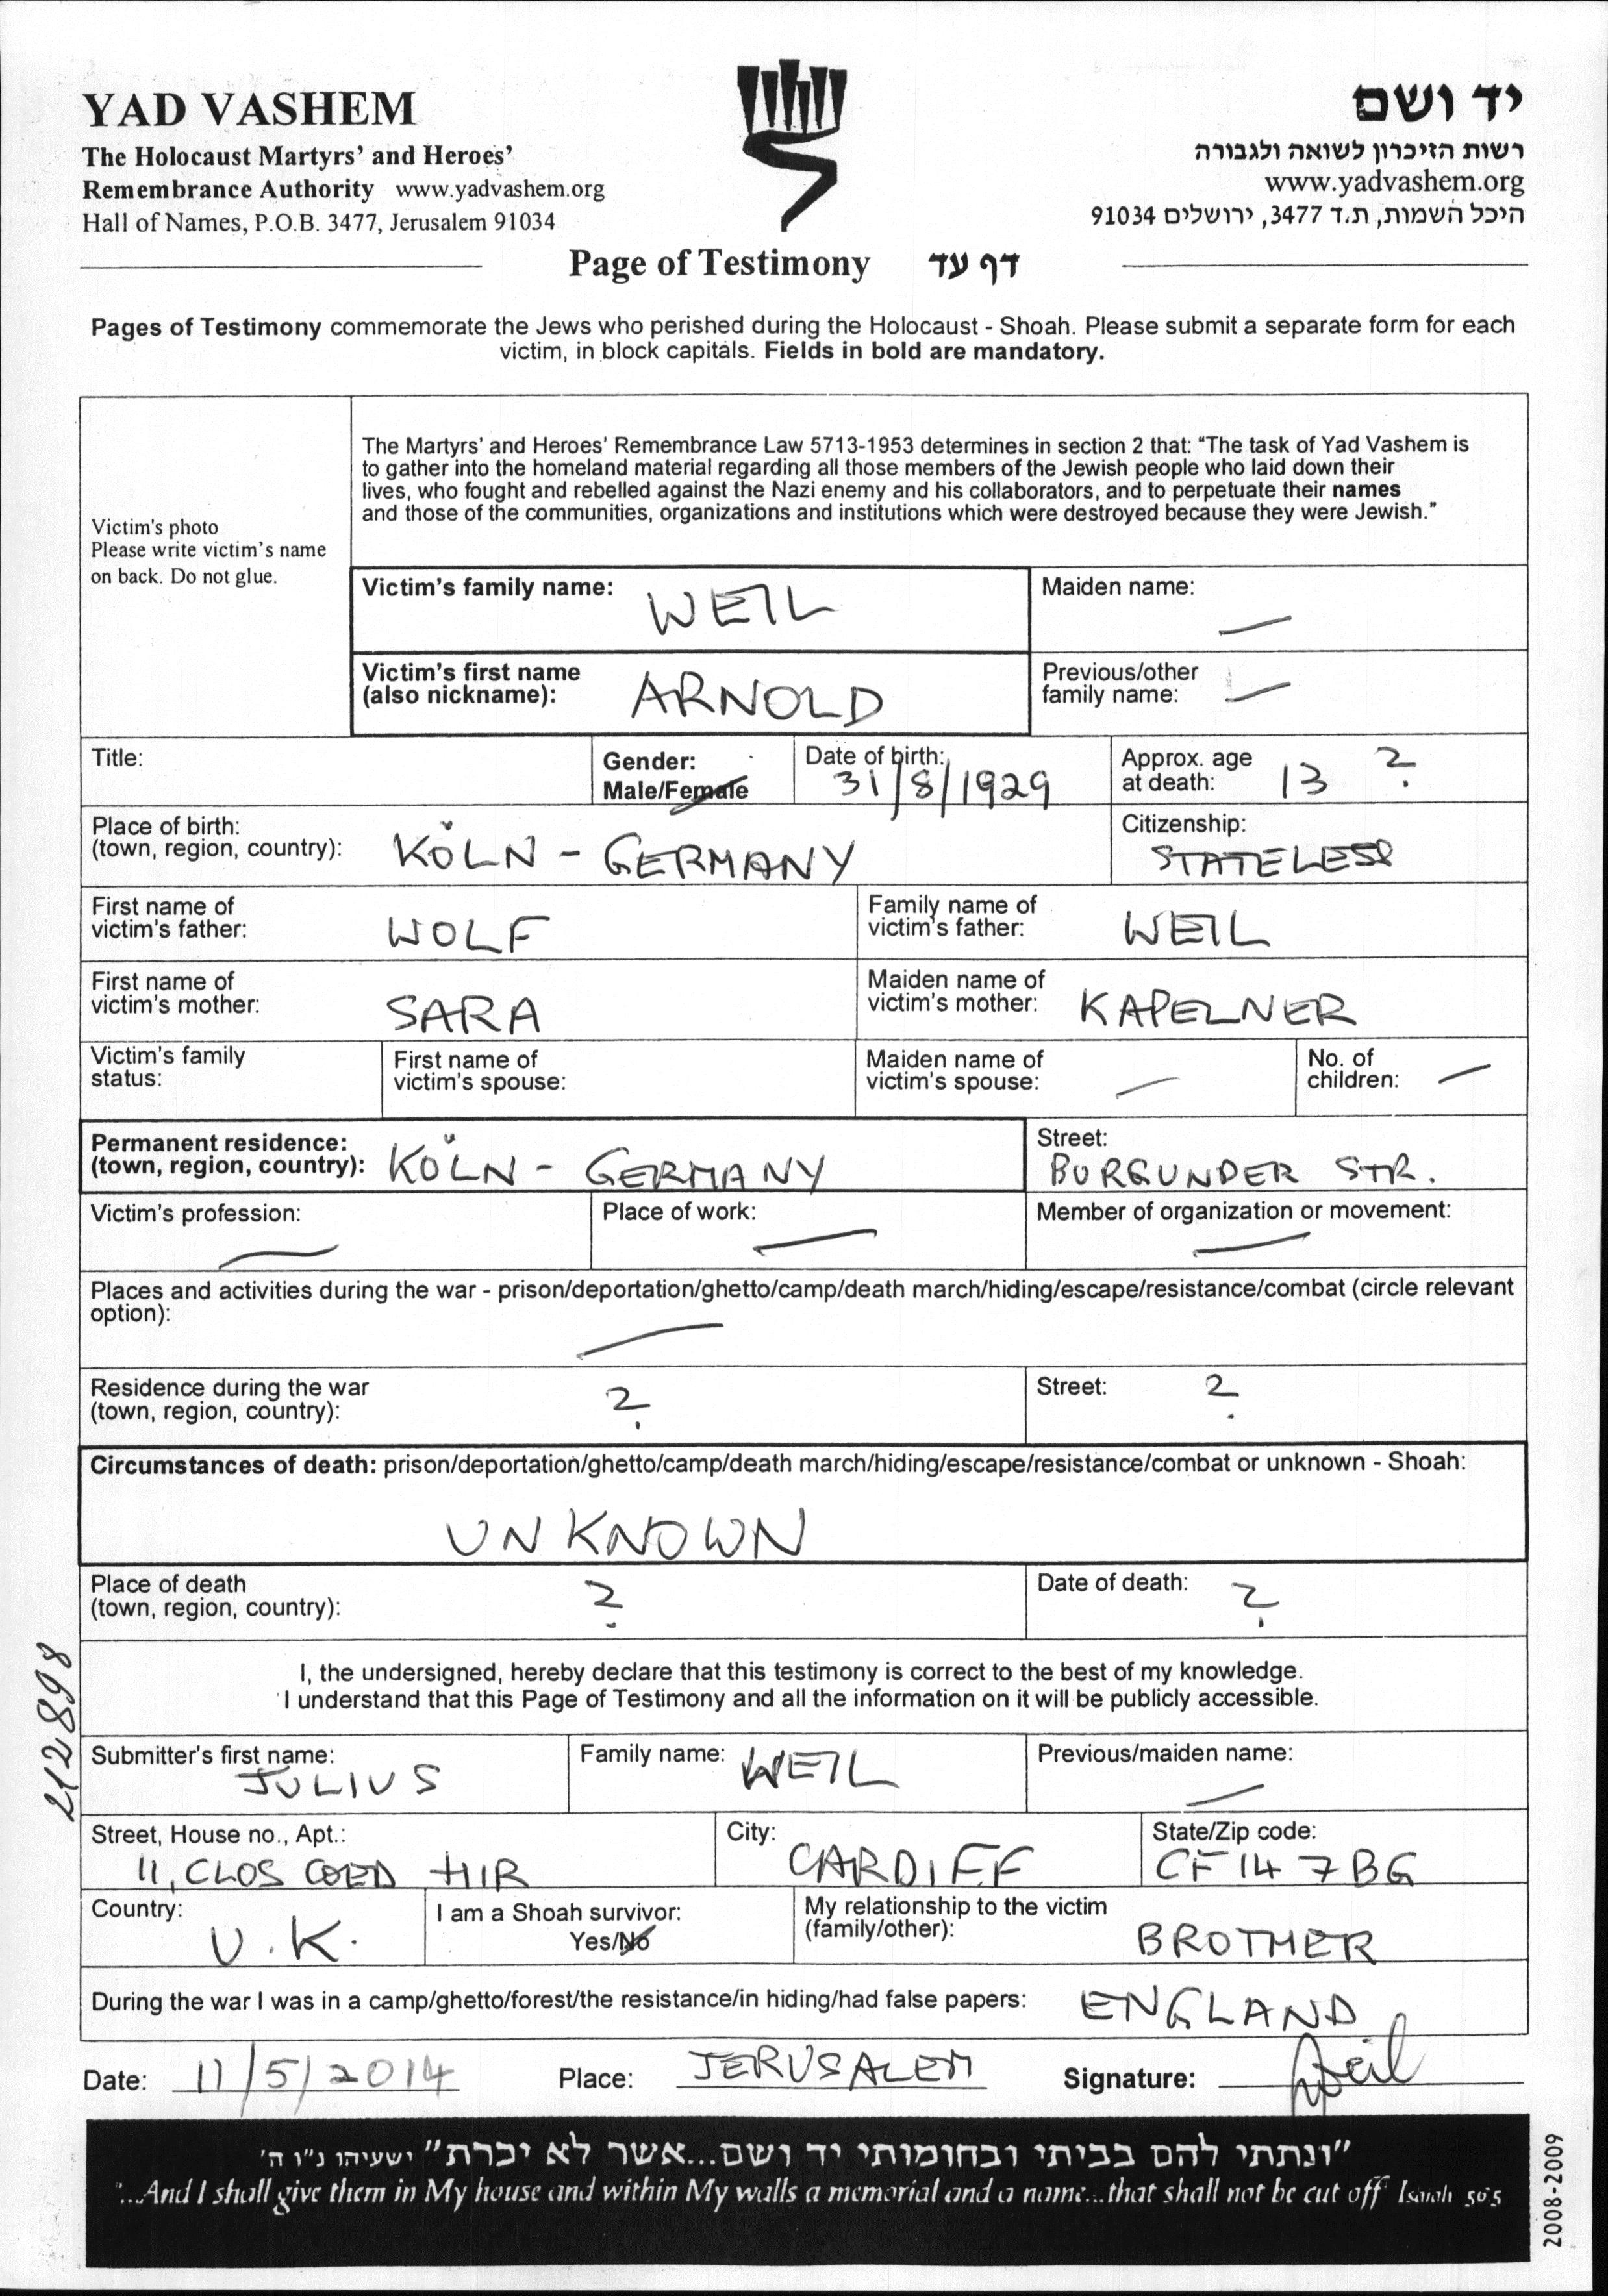 YAD VASHEM
The Holocaust Martyrs' and Heroes'
Remembrance Authority www.yadvashem.org
Hall of Names, P.O.B. 3477, Jerusalem 91034
יד ושם
רשות הזיכרון לשואה ולגבורה
www.yadvashem.org
היכל השמות, ת.ד 3477, ירושלים 91034
Page of Testimony דף עד
Pages of Testimony commemorate the Jews who perished during the Holocaust - Shoah. Please submit a separate form for each
victim, in block capitals. Fields in bold are mandatory.
Victim's photo
Please write victim's name
on back. Do not glue.
The Martyrs' and Heroes' Remembrance Law 5713-1953 determines in section 2 that: "The task of Yad Vashem is
to gather into the homeland material regarding all those members of the Jewish people who laid down their
lives, who fought and rebelled against the Nazi enemy and his collaborators, and to perpetuate their names
and those of the communities, organizations and institutions which were destroyed because they were Jewish."
Victim's family name: WEIL
Maiden name: —
Victim's first name
(also nickname): ARNOLD
Previous/other
family name: —
Title:
Gender:
Male/Female
Date of birth:
31/8/1929
Approx. age
at death: 13 ?
Place of birth:
(town, region, country): KÖLN - GERMANY
Citizenship:
STATELESS
First name of
victim's father: WOLF
Family name of
victim's father: WEIL
First name of
victim's mother: SARA
Maiden name of
victim's mother: KAPELNER
Victim's family
status:
First name of
victim's spouse:
Maiden name of
victim's spouse: —
No. of
children: —
Permanent residence:
(town, region, country): KÖLN - GERMANY
Street:
BURGUNDER STR.
Victim's profession:
—
Place of work:
—
Member of organization or movement:
—
Places and activities during the war - prison/deportation/ghetto/camp/death march/hiding/escape/resistance/combat (circle relevant
option):
—
Residence during the war
(town, region, country): ?
Street: ?
Circumstances of death: prison/deportation/ghetto/camp/death march/hiding/escape/resistance/combat or unknown - Shoah:
UNKNOWN
Place of death
(town, region, country): ?
Date of death: ?
I, the undersigned, hereby declare that this testimony is correct to the best of my knowledge.
I understand that this Page of Testimony and all the information on it will be publicly accessible.
212898
Submitter's first name:
JULIUS
Family name: WEIL
Previous/maiden name:
—
Street, House no., Apt.:
11, CLOS COED HIR
City:
CARDIFF
State/Zip code:
CF14 7BG
Country:
U.K.
I am a Shoah survivor:
Yes/No
My relationship to the victim
(family/other): BROTHER
During the war I was in a camp/ghetto/forest/the resistance/in hiding/had false papers: ENGLAND
Date: 11/5/2014 Place: JERUSALEM Signature: Weil
"ונתתי להם בביתי ובחומותי יד ושם...אשר לא יכרת" ישעיהו נ"ו ה'
"...And I shall give them in My house and within My walls a memorial and a name...that shall not be cut off" Isaiah 56:5
2008-2009